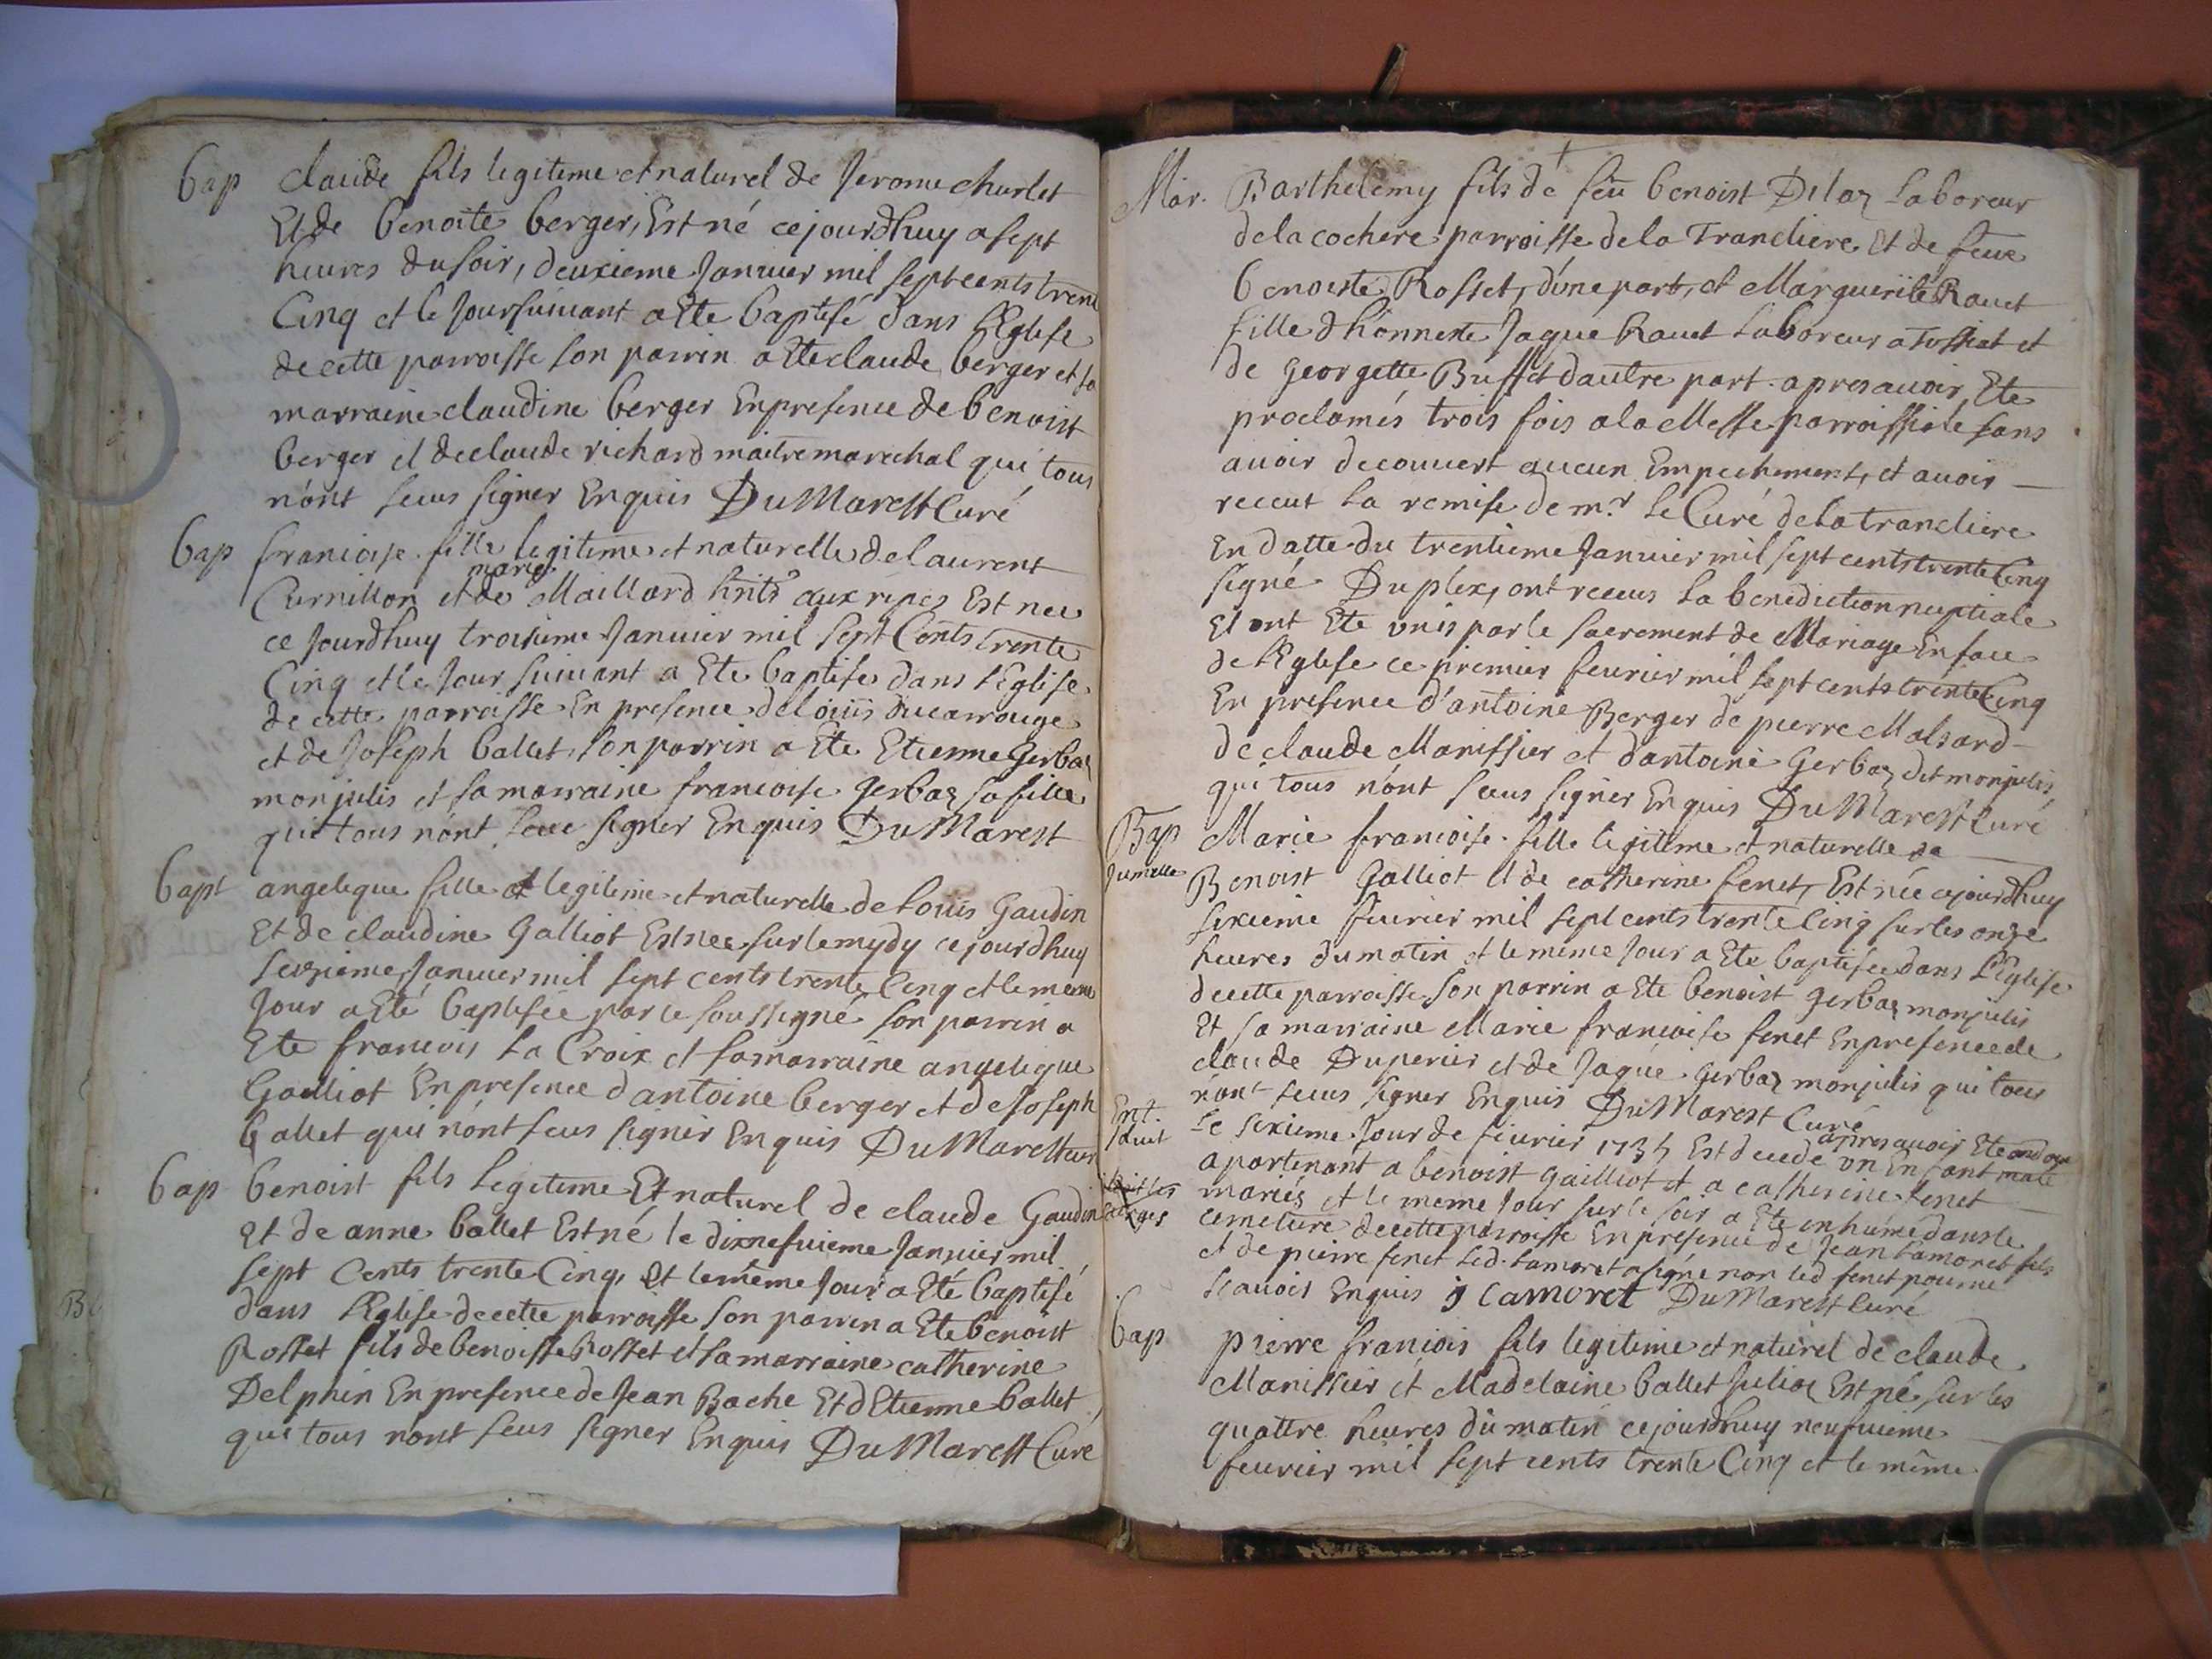 Bap claude fils legitime et naturel de Jerome churlet
Et de benoite berger, Est né cejourdhuy a sept
heures du soir, deuxieme Janvier mil sept cents trente
Cinq et le Jour suivant a Ete baptisé dans l'Eglise
de cette parroisse son parrin a Ete claude berger et sa
marraine claudine berger En presence de benoist
berger et de claude richard maitre marechal qui tous
n'ont sceus signer Enquis DuMarest Curé
Bap francoise fille legitime et naturelle de laurent
Curnillon et de marie Maillard aux ripes Est nee
ce Jourdhuy troisieme Janvier mil sept Cents trente
Cinq et le Jour suivant a Ete baptisee dans l'Eglise
de cette parroisse En presence de louis ducarrouge
et de Joseph ballet, son parrin a Ete Etienne Gerbaz
monjulis et sa marraine francoise Gerbaz sa fille
qui tous n'ont sceu signer Enquis DuMarest
bapt angelique fille legitime et naturelle de Louis Gaudin
Et de claudine Galliot Est nee sur le mydy cejourdhuy
seizieme Janvier mil sept cents trente Cinq et le meme
Jour a Eté baptisée par le soussigné son parrin a
Ete francois La Croix et sa marraine angelique
Gailliot En presence d antoine berger et de Joseph
ballet qui n'ont sceus signer Enquis DuMarest cur
bap benoist fils Legitime Et naturel de claude Gaudin
Et de anne ballet Est né le dixneufvieme Janvier mil
sept Cents trente Cinq, Et le même Jour a Eté baptisé
dans l'Eglise de cette parroisse son parrin a Ete benoist
Rosset fils de benoist Rosset et sa marraine catherine
Delphin En presence de Jean Bache Et d Etienne ballet
qui tous n'ont sceus signer Enquis DuMarest Curé
Mar. Barthelemy fils de feu benoist Delaz Laboreur
de la cochere parroisse de la Trancliere Et de feue
benoiste Rosset, d'une part, et Marguerite Ravet
fille d'honneste Jaque Ravet Laboreur a Tossiat et
de georgette Buffet dautre part. apres avoir Ete
proclamés trois fois a la Messe parroissiale sans
avoir decouvert aucun Empechement, et avoir
receut la remise de mr. le Curé de la trancliere
En datte du trentieme Janvier mil sept cents trente Cinq
signé Duplex, ont receus la benediction nuptiale
Et ont Ete unis par le sacrement de Mariage En face
de l'Eglise ce premier fevrier mil sept cents trente Cinq
En presence d'antoine Berger de pierre Malsard
de claude Manissier et d'antoine Gerbaz dit monjulis
qui tous n'ont sceus signer Enquis DuMarest Curé
Bap Marie francoise fille legitime et naturelle de
Jumelle Benoist Galliot et de catherine fenet, Est née cejourdhuy
sixieme fevrier mil sept cents trente Cinq sur les onze
heures du matin et le meme Jour a Ete baptisée dans l'Eglise
de cette parroisse son parrin a Ete benoist gerbaz monjulis
Et sa marraine Marie francoise fenet En presence de
claude Duperier et de Jaque Gerbaz monjulis qui tous
n'ont sceus signer Enquis DuMarest Curé
Ent. Le sixieme Jour de fevrier 1735 Est decedé apres avoir Ete andoyé un Enfant male
apartenant a benoist Gailliot et a catherine fenet
mariés et le meme Jour sur le soir a Ete inhumé dans le
cemetiere de cette parroisse En presence de Jean Lamoret fils
et de pierre fenet led. Lamoret a signé non led fenet pour ne
scavoir Enquis j Lamoret DuMarest Curé
bap pierre francois fils legitime et naturel de claude
Manissier et Madelaine ballet Juliaz Est né sur les
quattre heures du matin cejourdhuy neufvieme
fevrier mil sept cents trente Cinq et le même